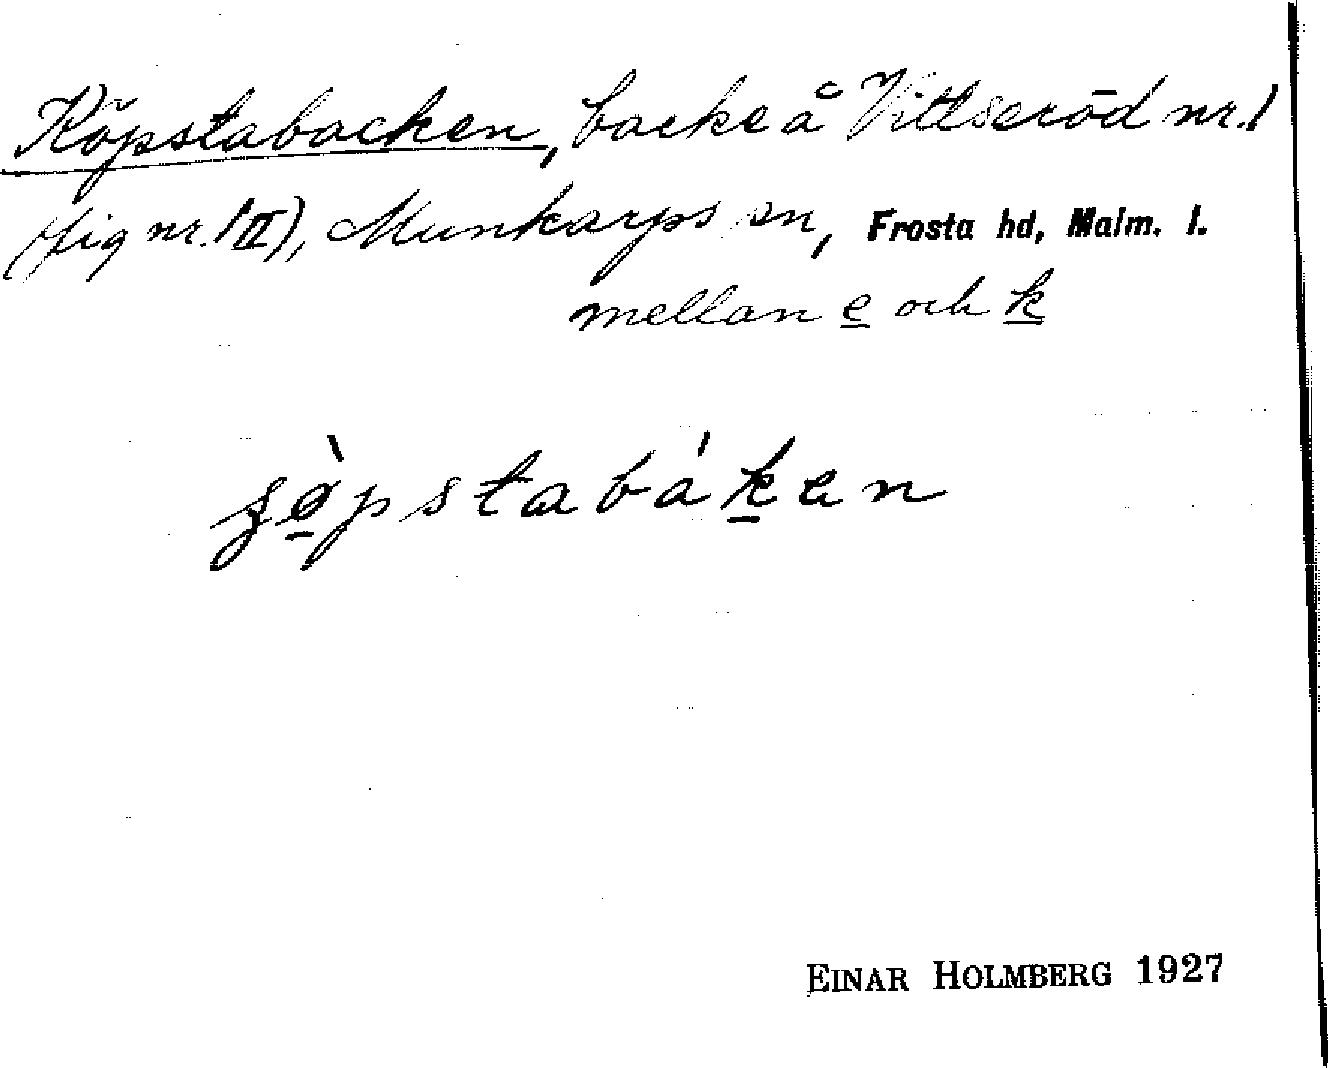 Köpstabacken, backe å Vittseröd nr. 1
(fig nr. 1 II), Munkarps sn, Frosta hd, Malm. l.
mellan e och k
EINAR HOLMBERG 1927